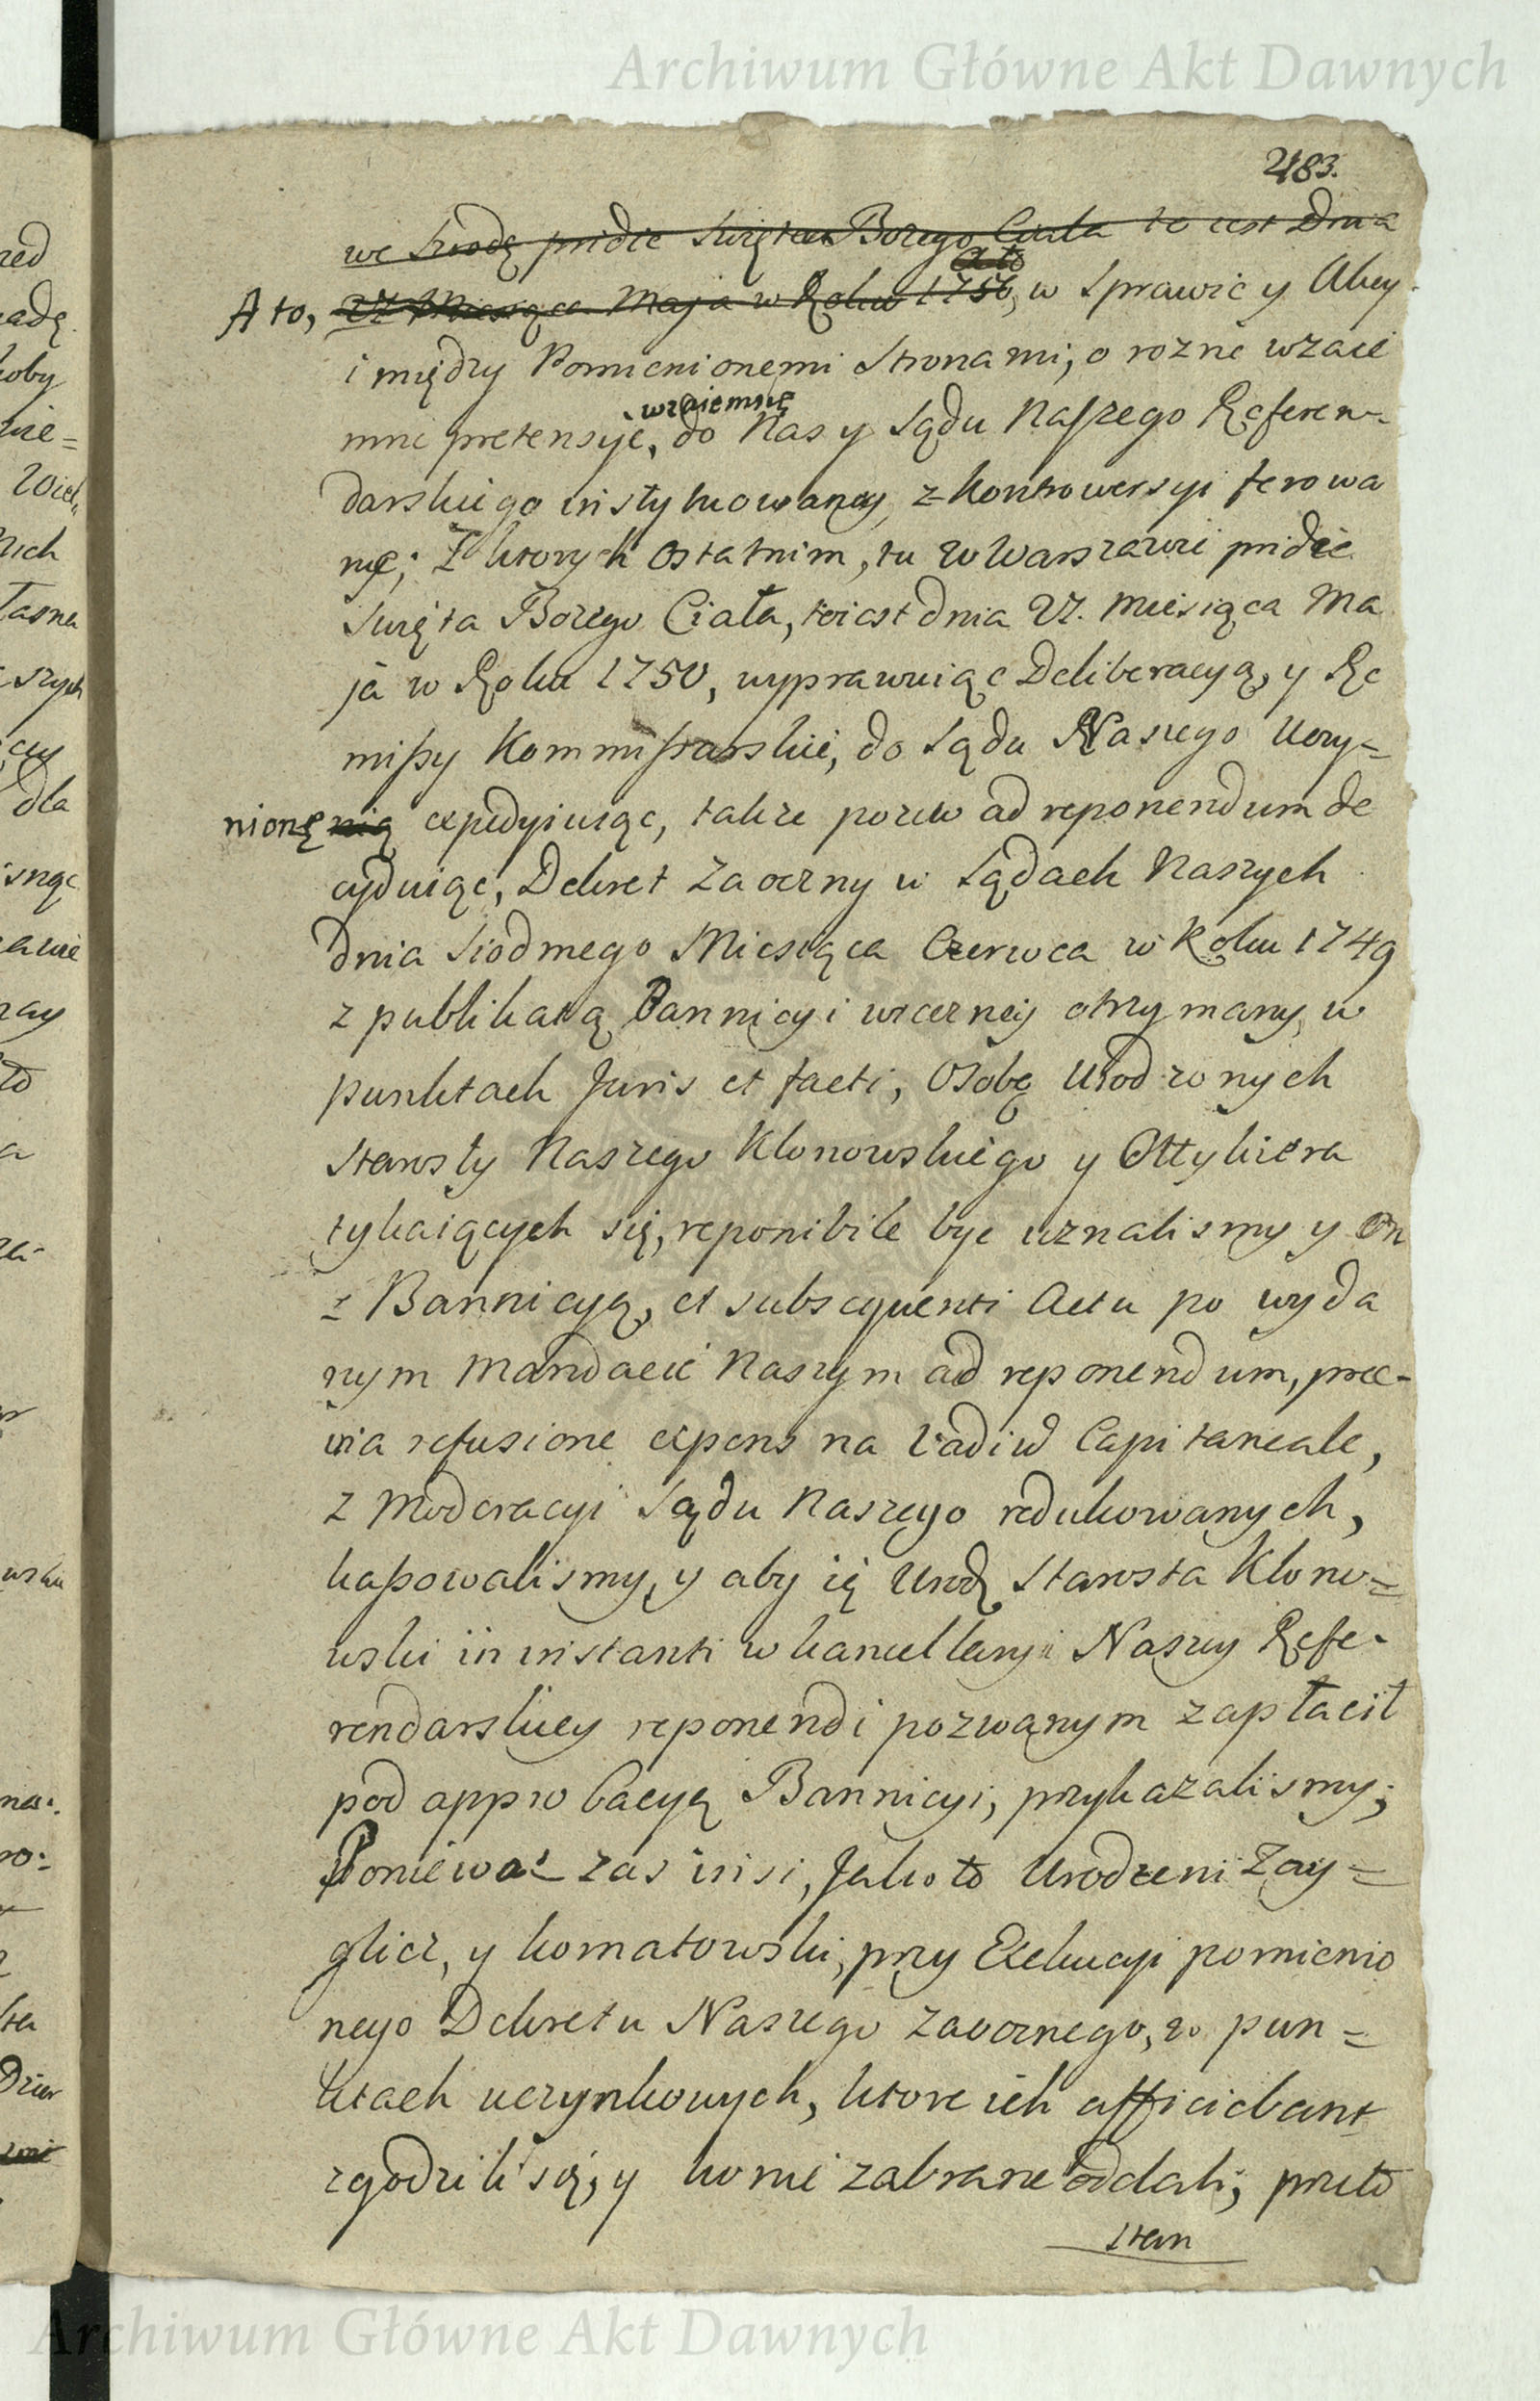 Archiwum Główne Akt Dawnych
483.
we Srodę pridie Swięta Bozego Ciała to iest Dnia
A to, 27 Miesiąca Maja w Roku 1750, w Sprawie y Akcy
i między Pomienionemi Stronami, o rozne wzaie
wzaiemnie
mne pretensye, do Nas y Sądu Naszego Referen-
darskiego instytuowaney, z kontrowersyi ferowa
ne; Z ktorych ostatnim, tu w Warszawie pridie
Swięta Bozego Ciała, to iest dnia 27. Miesiąca Ma
ja w Roku 1750, wyprawuiąc Deliberacyą, y Re
mißy Kommißarskie, do Sądu Naszego Uczy-
nionę nią expedyiuiąc, takze pozew ad reponendum de
cyduiąc, Dekret Zaoczny w Sądach Naszych
Dnia Siodmego Miesiąca Czerwca w Roku 1749
z publikatą Bannicyi wieczney otrzymany, w
punktach Juris et facti, Osobę Urodzonych
Starosty Naszego Klonowskiego y Ottyliiera
tykaiących się, reponibile byc uznalismy y On
z Bannicyą, et subsequenti Actu po wyda
nym Mandacie Naszym ad reponendum, prae-
via refusione expens na Vadiu Capitaneale,
z Moderacyi Sądu Naszego redukowanych,
kaßowalismy, y aby ię Urodz Starosta Klono-
wski in instanti w kancellaryi Naszey Refe-
rendarskiey reponendi pozwanym zapłacił
pod approbacyą Bannicyi, przykazalismy;
Poniewaz zas insi, Jako to Urodzeni Zay-
glicz, y komatowski, przy Exekucyi pomienio
nego Dekretu Naszego Zaocznego, w pun-
ktach uczynkowych, ktore ich afficiebant
zgodzili się, y konie zabrane oddali; przeto
Staro
Archiwum Główne Akt Dawnych